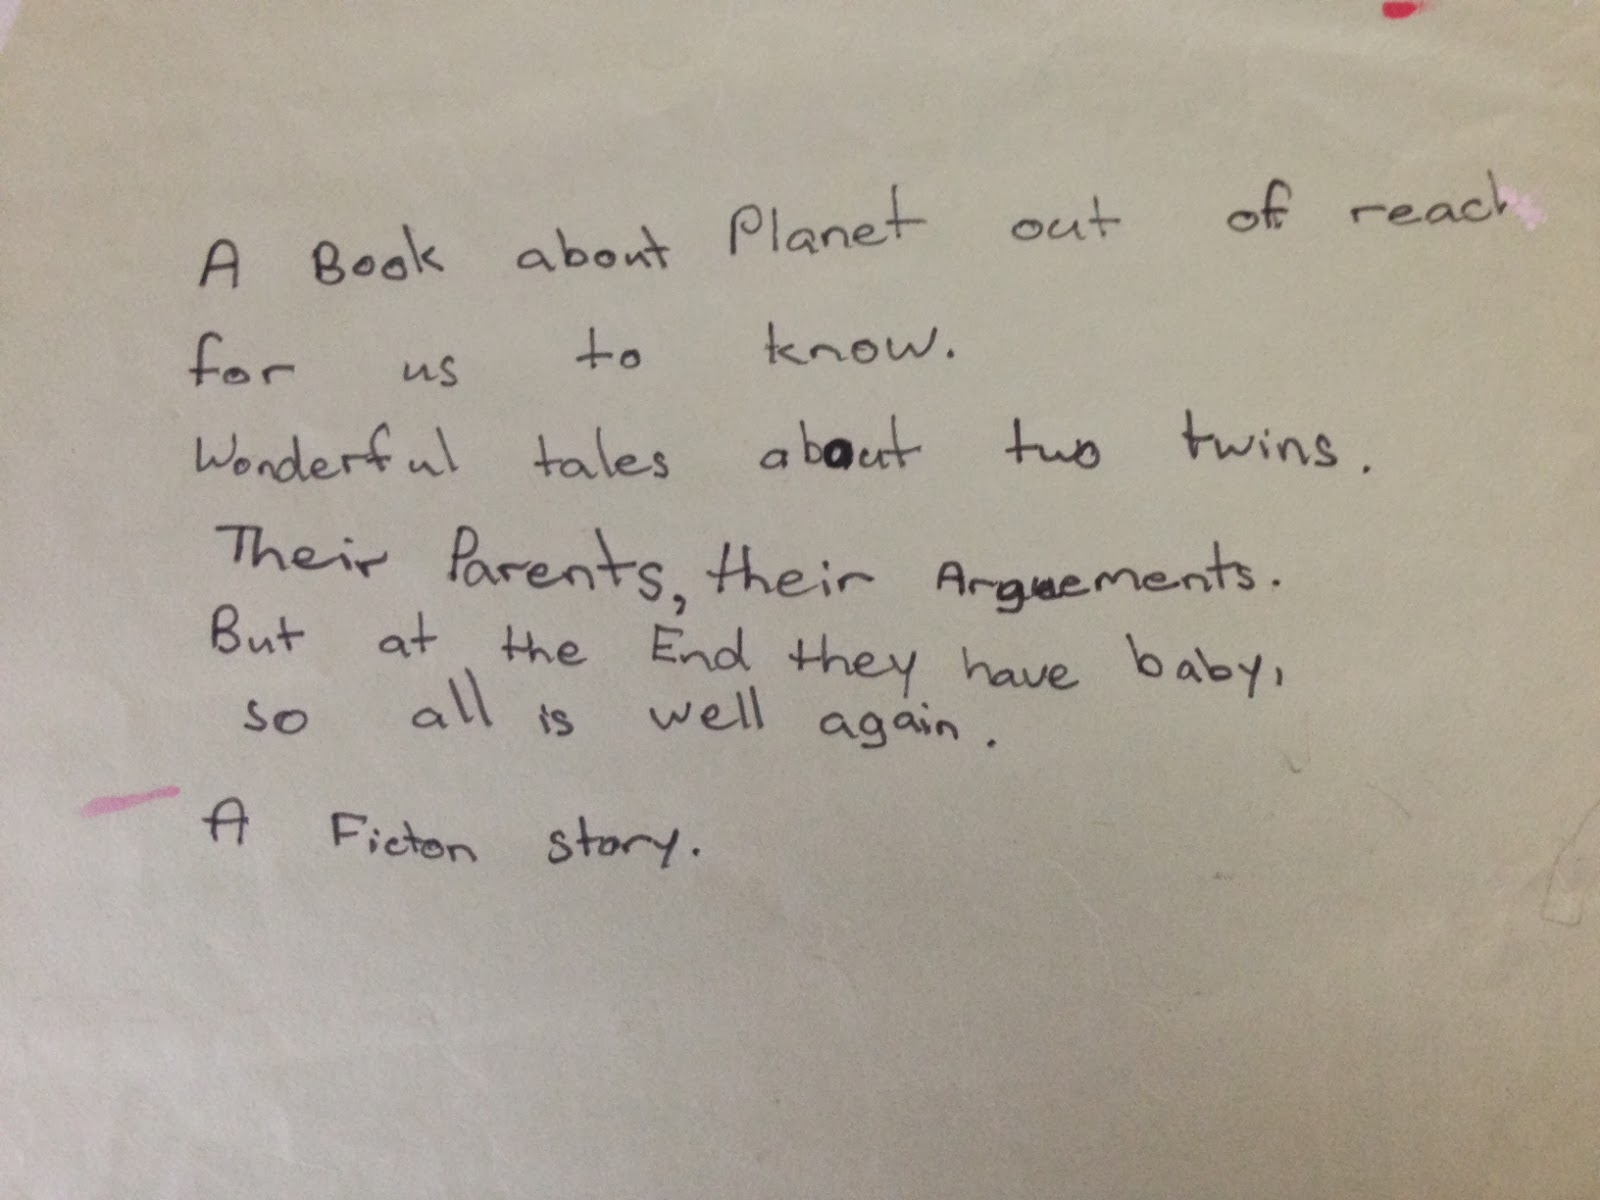 A Book about Planet out of reach
for us to know.
Wonderful tales about two twins.
Their Parents, their Arguements.
But at the End they have baby,
so all is well again.
A Ficton story.